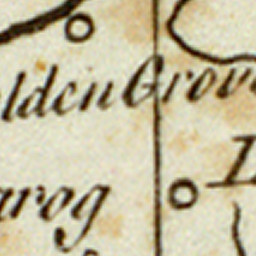 olden Grove
arog
L